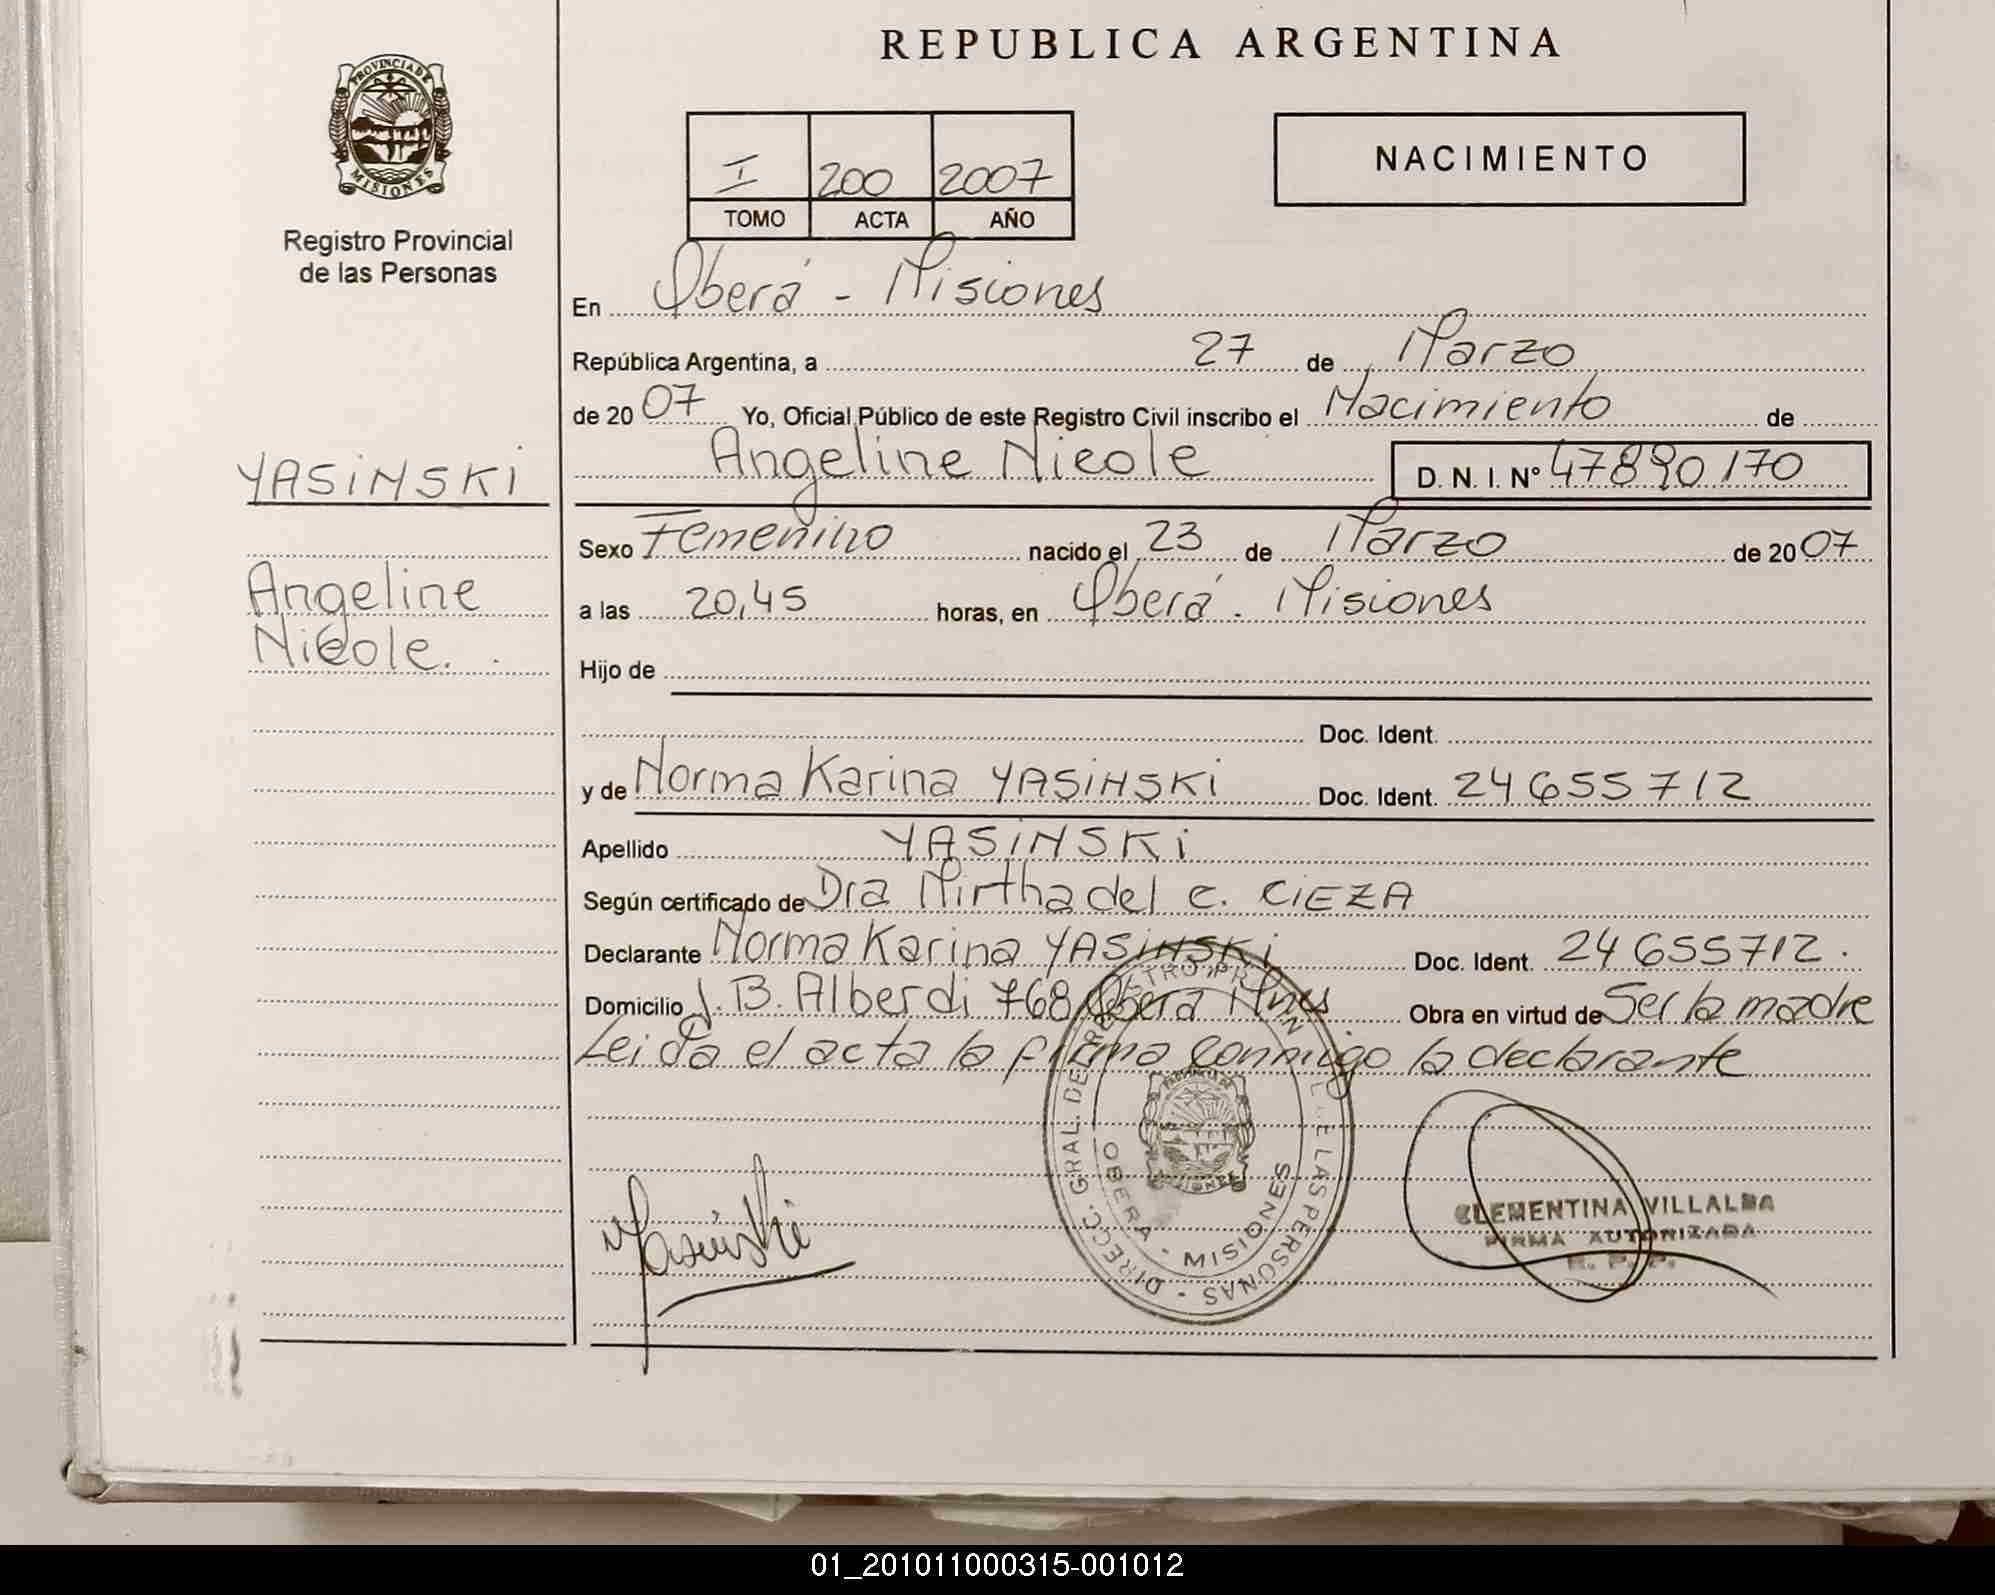 REPUBLICA ARGENTINA
PROVINCIA DE
MISIONES
Registro Provincial
de las Personas
I 200 2007
TOMO ACTA AÑO
NACIMIENTO
En Oberá - Misiones
República Argentina, a 27 de Marzo
de 20 07 Yo, Oficial Público de este Registro Civil inscribo el Nacimiento de
Angeline Nicole D. N. I. Nº 47890170
YASiNSKi
Angeline
Nicole.
Sexo Femenino nacido el 23 de Marzo de 20 07
a las 20,45 horas, en Oberá - Misiones
Hijo de
Doc. Ident.
y de Norma Karina YASiNSKi Doc. Ident. 24655712
Apellido YASiNSKi
Según certificado de Dra Mirtha del C. CiEZA
Declarante Norma Karina YASiNSKi Doc. Ident. 24655712.
Domicilio J. B. Alberdi 768 Oberá Mnes Obra en virtud de Ser la madre
Leida el acta la firma conmigo la declarante
OBERA - MISIONES
Yasinski
CLEMENTINA VILLALBA
FIRMA AUTORIZADA
R. P. P.
01_201011000315-001012